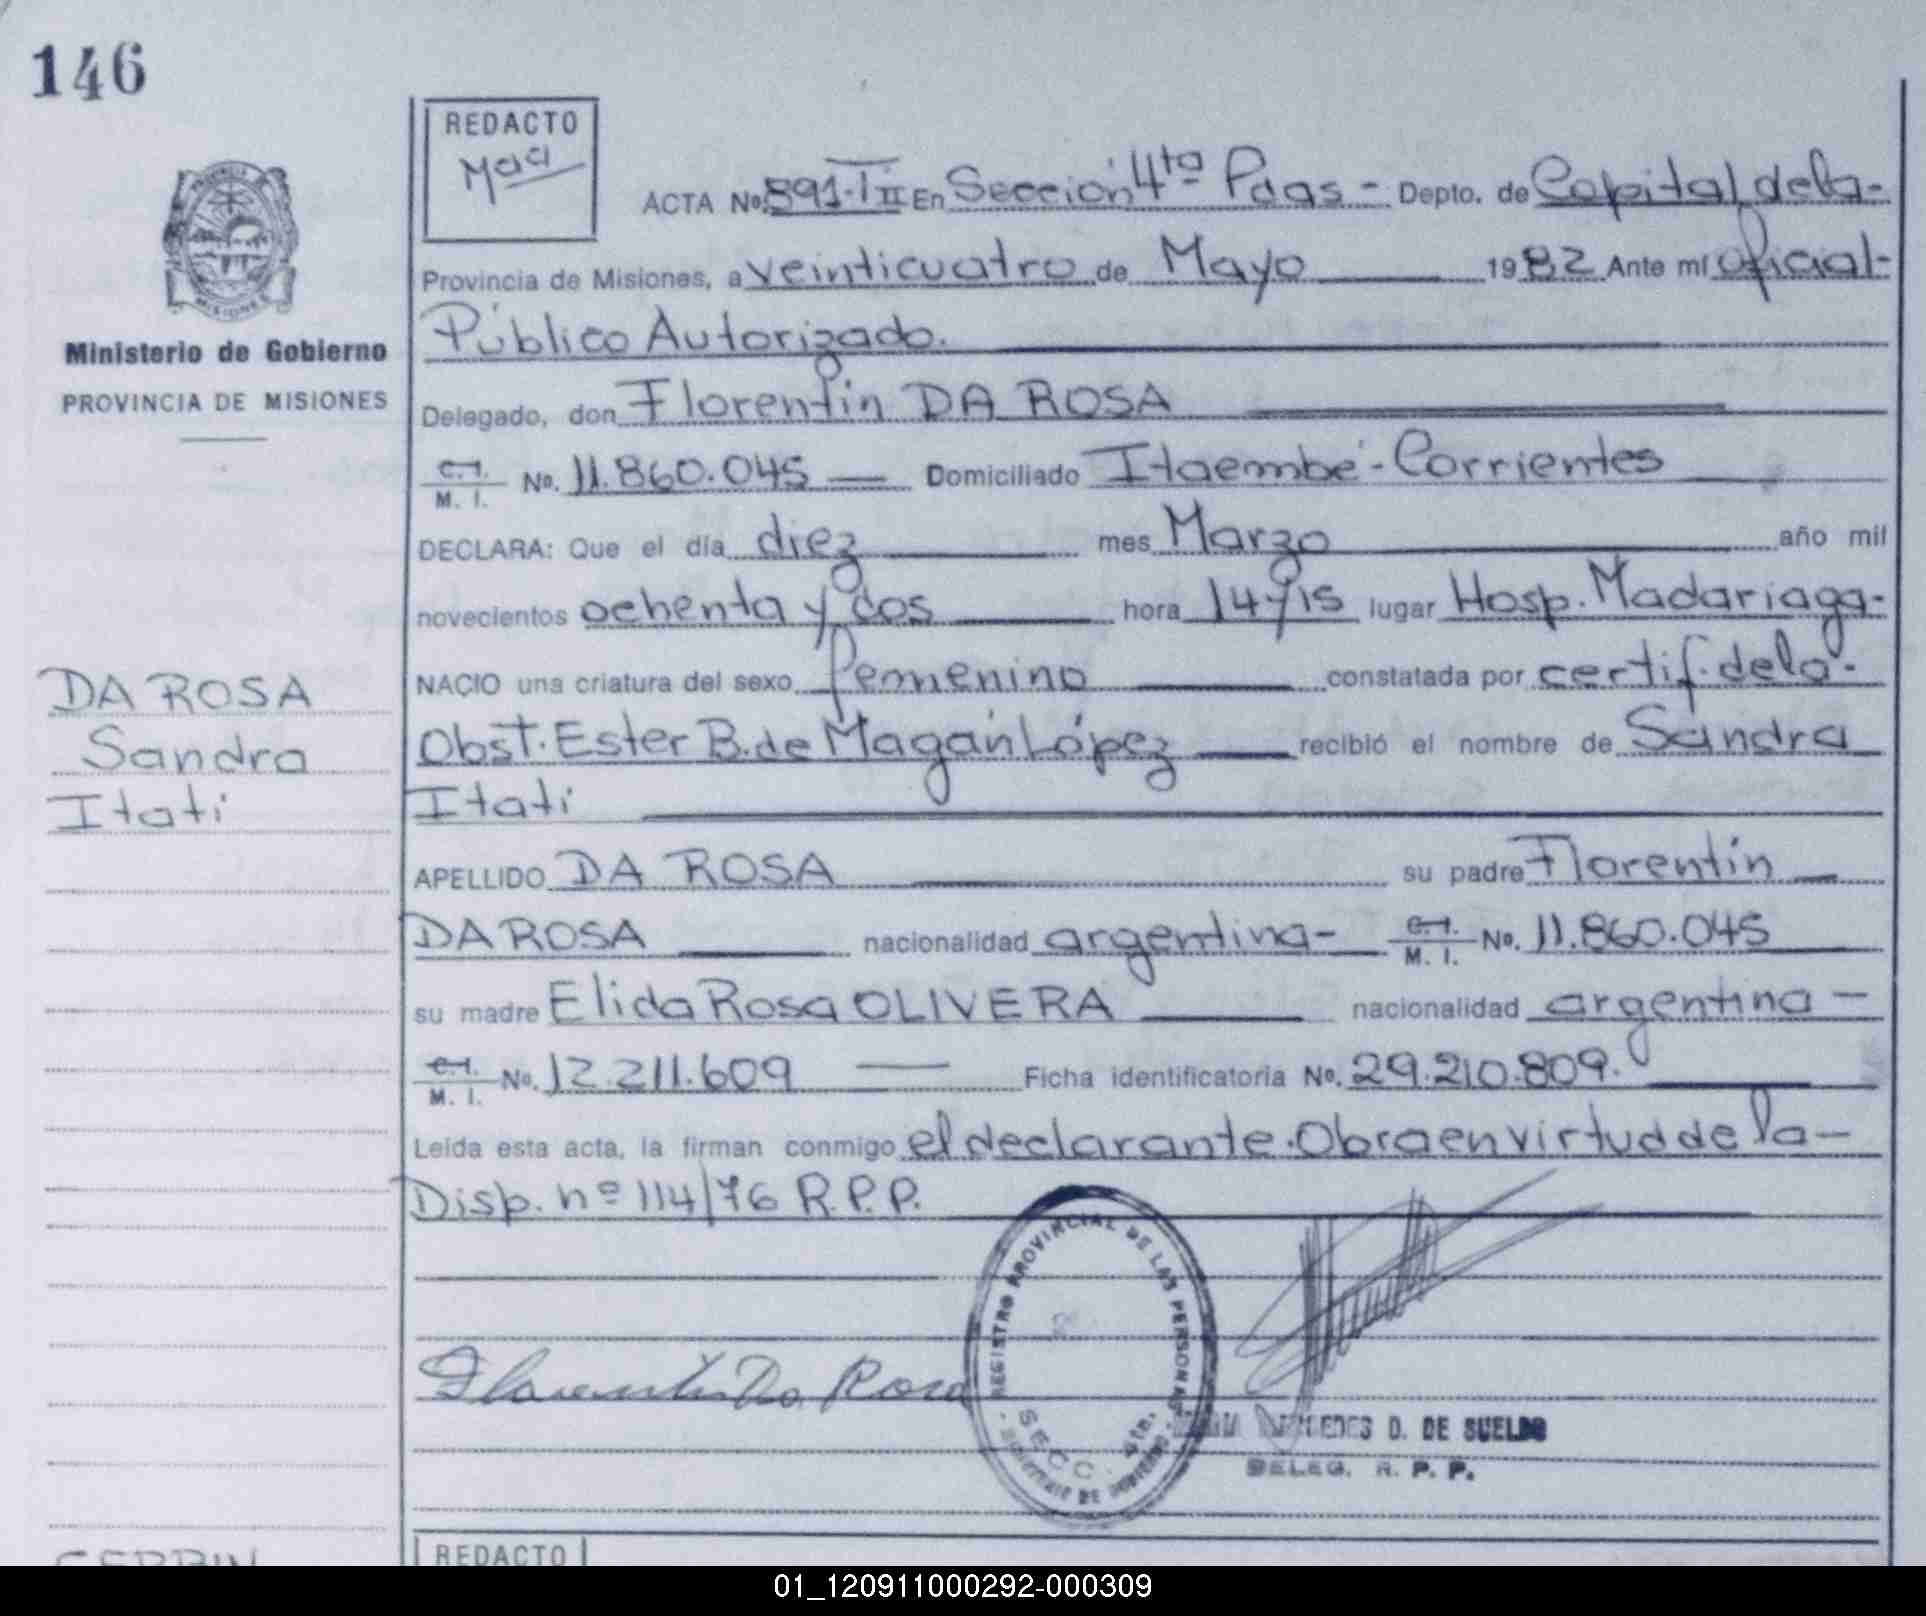 146
REDACTO
Maa
ACTA No. 891·T II En Sección 4ta Pdas - Depto. de Capital de la-
Provincia de Misiones, a veinticuatro de Mayo 1982 Ante mí oficial-
Público Autorizado.
Ministerio de Gobierno
PROVINCIA DE MISIONES
Delegado, don Florentín DA ROSA
C.I. M. I. No. 11.860.045 Domiciliado Itaembé - Corrientes
DECLARA: Que el día diez mes Marzo año mil
novecientos ochenta y dos hora 14 y 15 lugar Hosp. Madariaga-
NACIO una criatura del sexo femenino constatada por certif. de la-
Obst. Ester B. de Magán López recibió el nombre de Sandra
Itatí
DA ROSA
Sandra
Itatí
APELLIDO DA ROSA su padre Florentín
DA ROSA nacionalidad argentina- C.I. M. I. No. 11.860.045
su madre Elida Rosa OLIVERA nacionalidad argentina-
C.I. M. I. No. 12.211.609 Ficha identificatoria No. 29.210.809.
Leída esta acta, la firman conmigo el declarante. Obra en virtud de la-
Disp. nº 114/76 R.P.P.
REGISTRO PROVINCIAL DE LAS PERSONAS
SECC. 4ta.
MINISTERIO DE GOBIERNO
Florentín Da Rosa
MERCEDES D. DE SUELDO
DELEG. R. P. P.
REDACTO
01_120911000292-000309